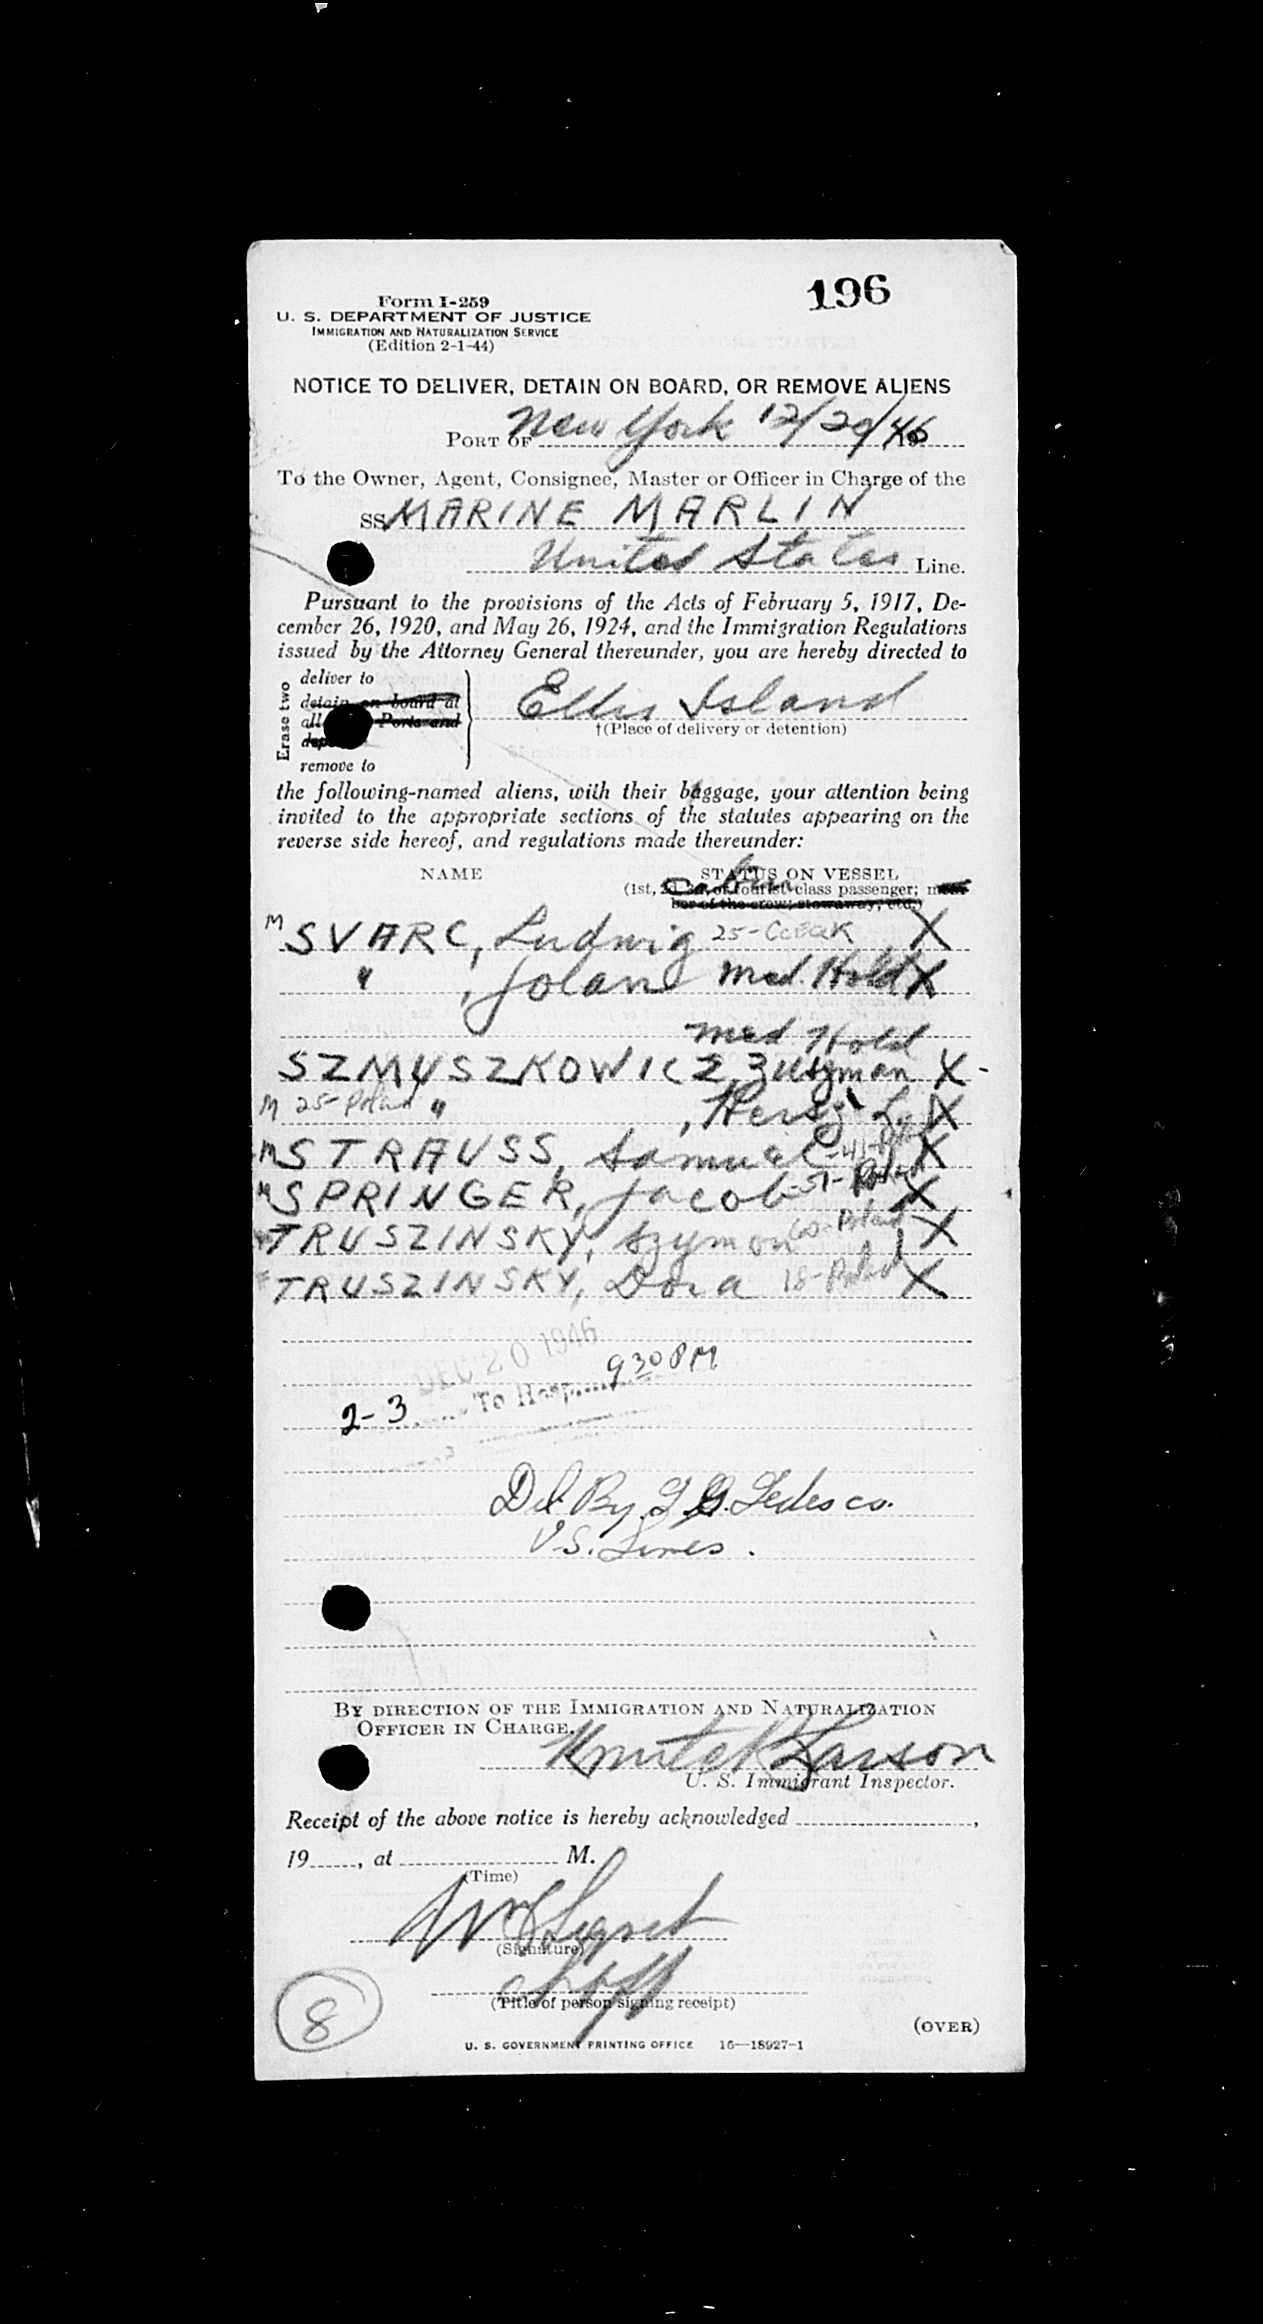 196
Form I-259
U. S. DEPARTMENT OF JUSTICE
IMMIGRATION AND NATURALIZATION SERVICE
(Edition 2-1-44)
NOTICE TO DELIVER, DETAIN ON BOARD, OR REMOVE ALIENS
PORT OF New York 12/20/46
To the Owner, Agent, Consignee, Master or Officer in Charge of the
SS MARINE MARLIN
United States Line.
Pursuant to the provisions of the Acts of February 5, 1917, De-
cember 26, 1920, and May 26, 1924, and the Immigration Regulations
issued by the Attorney General thereunder, you are hereby directed to
Erase two
deliver to
detain on board at
all Ports and
remove to
Ellis Island
†(Place of delivery or detention)
the following-named aliens, with their baggage, your attention being
invited to the appropriate sections of the statutes appearing on the
reverse side hereof, and regulations made thereunder:
NAME STATUS ON VESSEL
Cabin
(1st, 2d, 3d, or tourist-class passenger; mem-
ber of the crew; stowaway; etc.)
M SVARC, Ludwig 25- X
" , Jolan Med. Hold X
Med Hold
SZMUSZKOWICZ, X -
M 25-Poland " , X
M STRAUSS, Samuel -41- X
M SPRINGER, Jacob -51- Poland X
TRUSZINSKY, Szymon 60-Poland X
TRUSZINSKY, Dora 18-Poland X
DEC 20 1946
9 30 PM
2-3 To Hosp.
Del. By G. Tedesco.
U.S. Lines.
BY DIRECTION OF THE IMMIGRATION AND NATURALIZATION
OFFICER IN CHARGE.
Larson
U. S. Immigrant Inspector.
Receipt of the above notice is hereby acknowledged ,
19 , at M.
(Time)
(Signature)
(Title of person signing receipt)
8
(OVER)
U. S. GOVERNMENT PRINTING OFFICE 16—18927-1